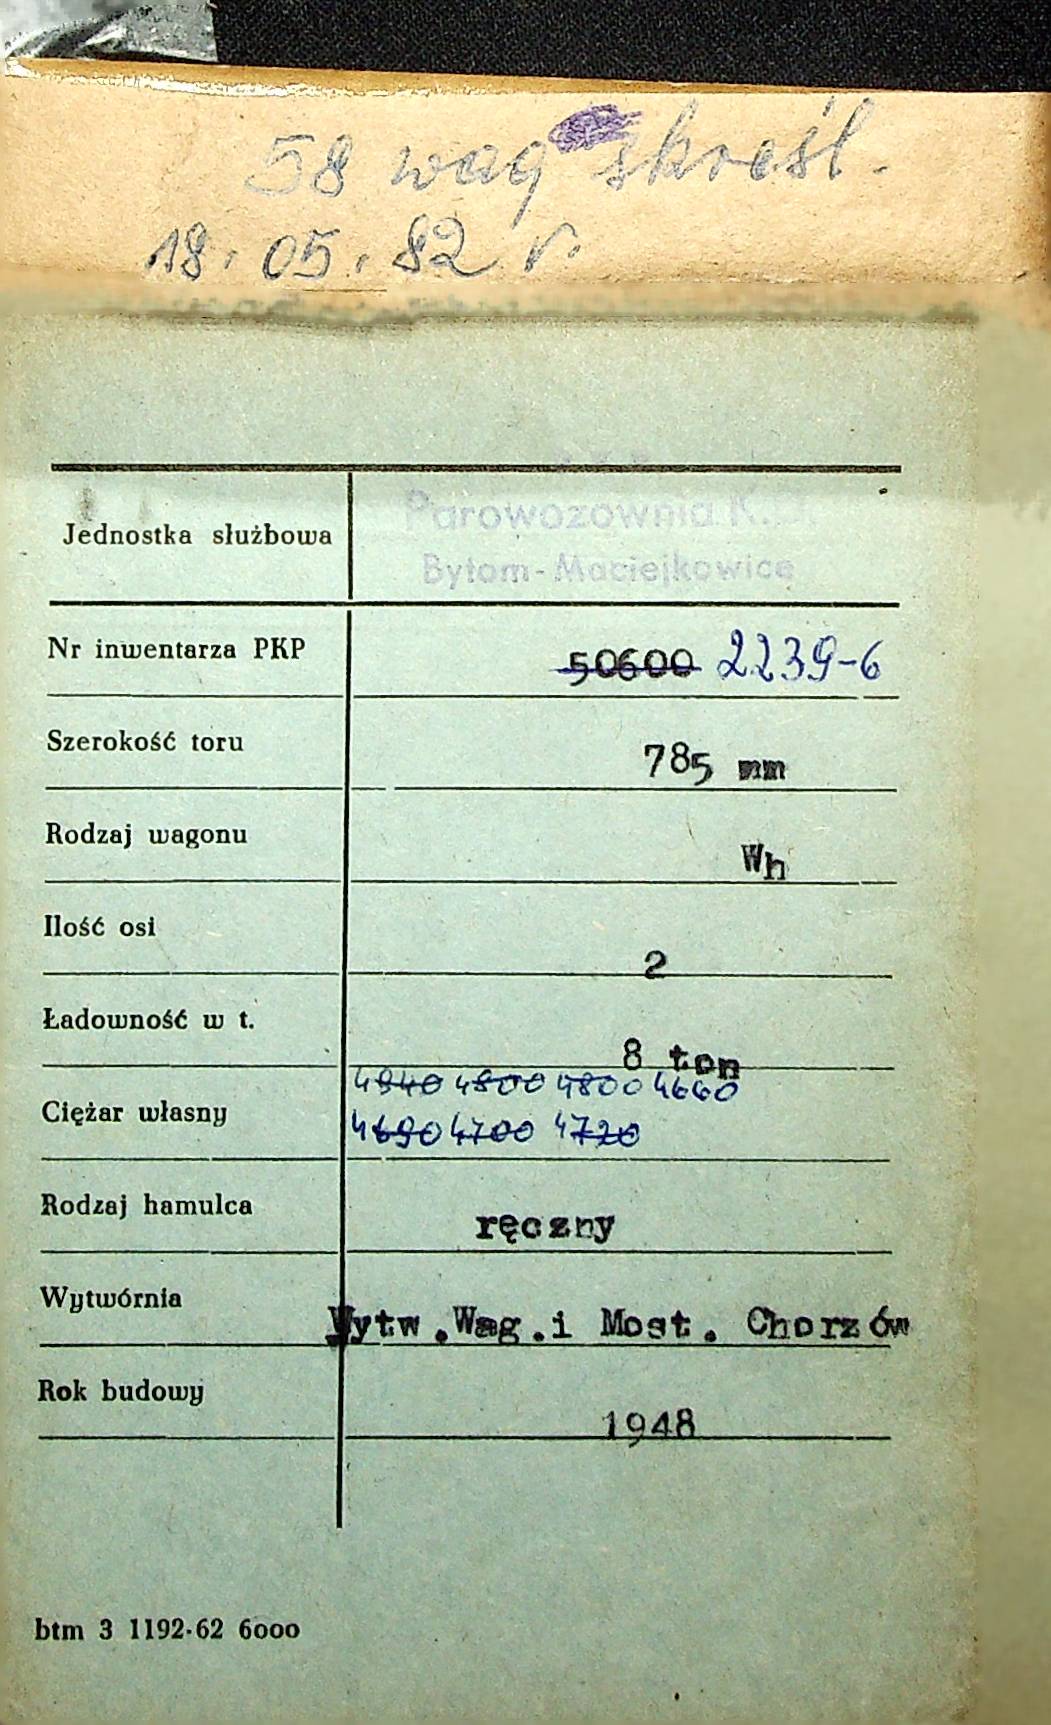 58 wag skreśl.
18.05.82 r.
Parowozownia K.D.
Jednostka służbowa
Bytom-Maciejkowice
Nr inwentarza PKP 50600 2239-6
Szerokość toru 785 mm
Rodzaj wagonu Wh
Ilość osi 2
Ładowność w t. 8 ton
4940 4800 4800 4660
Ciężar własny
4690 4700 4720
Rodzaj hamulca ręczny
Wytwórnia Wytw.Wag.i Most. Chorzów
Rok budowy 1948
btm 3 1192-62 6000